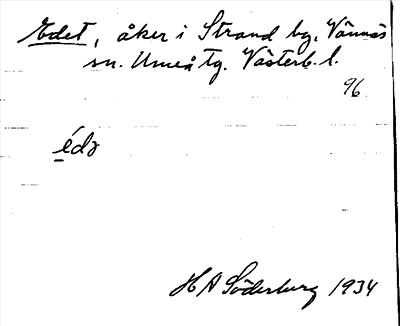 Edet, åker i Strand by, Vännäs
sn. Umeå tg. Västerb. l.
96.
édə
H A Söderberg 1934